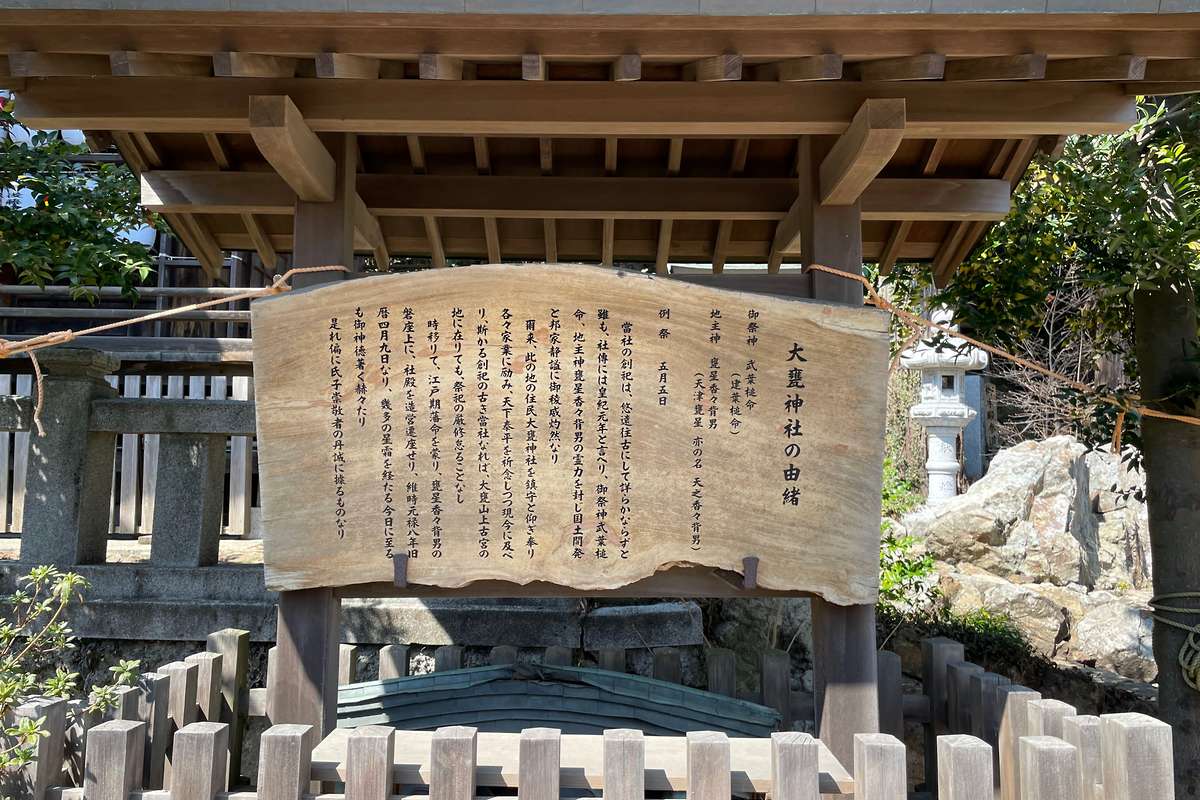 大甕神社の由緒
御祭神 武葉槌命
（建葉槌命）
地主神 甕星香々背男
（天津甕星 亦の名 天之香々背男）
例祭 五月五日
當社の創祀は、悠遠往古にして詳らかならずと
雖も、社傳には皇紀元年と言へり、御祭神武葉槌
命、地主神甕星香々背男の霊力を封じ国土開発
と邦家静謐に御稜威灼然なり
爾来、此の地の住民大甕神社を鎮守と仰ぎ奉り
各々家業に励み、天下泰平を祈念しつつ現今に及べ
り、斯かる創祀の古き當社なれば、大甕山上古宮の
地に在りても、祭祀の厳修怠ることなし
時移りて、江戸期藩命を蒙り、甕星香々背男の
磐座上に、社殿を造営遷座せり、維時元禄八年旧
暦四月九日なり、幾多の星霜を経たる今日に至る
も御神徳著く赫々たり
是れ偏に氏子崇敬者の丹誠に據るものなり